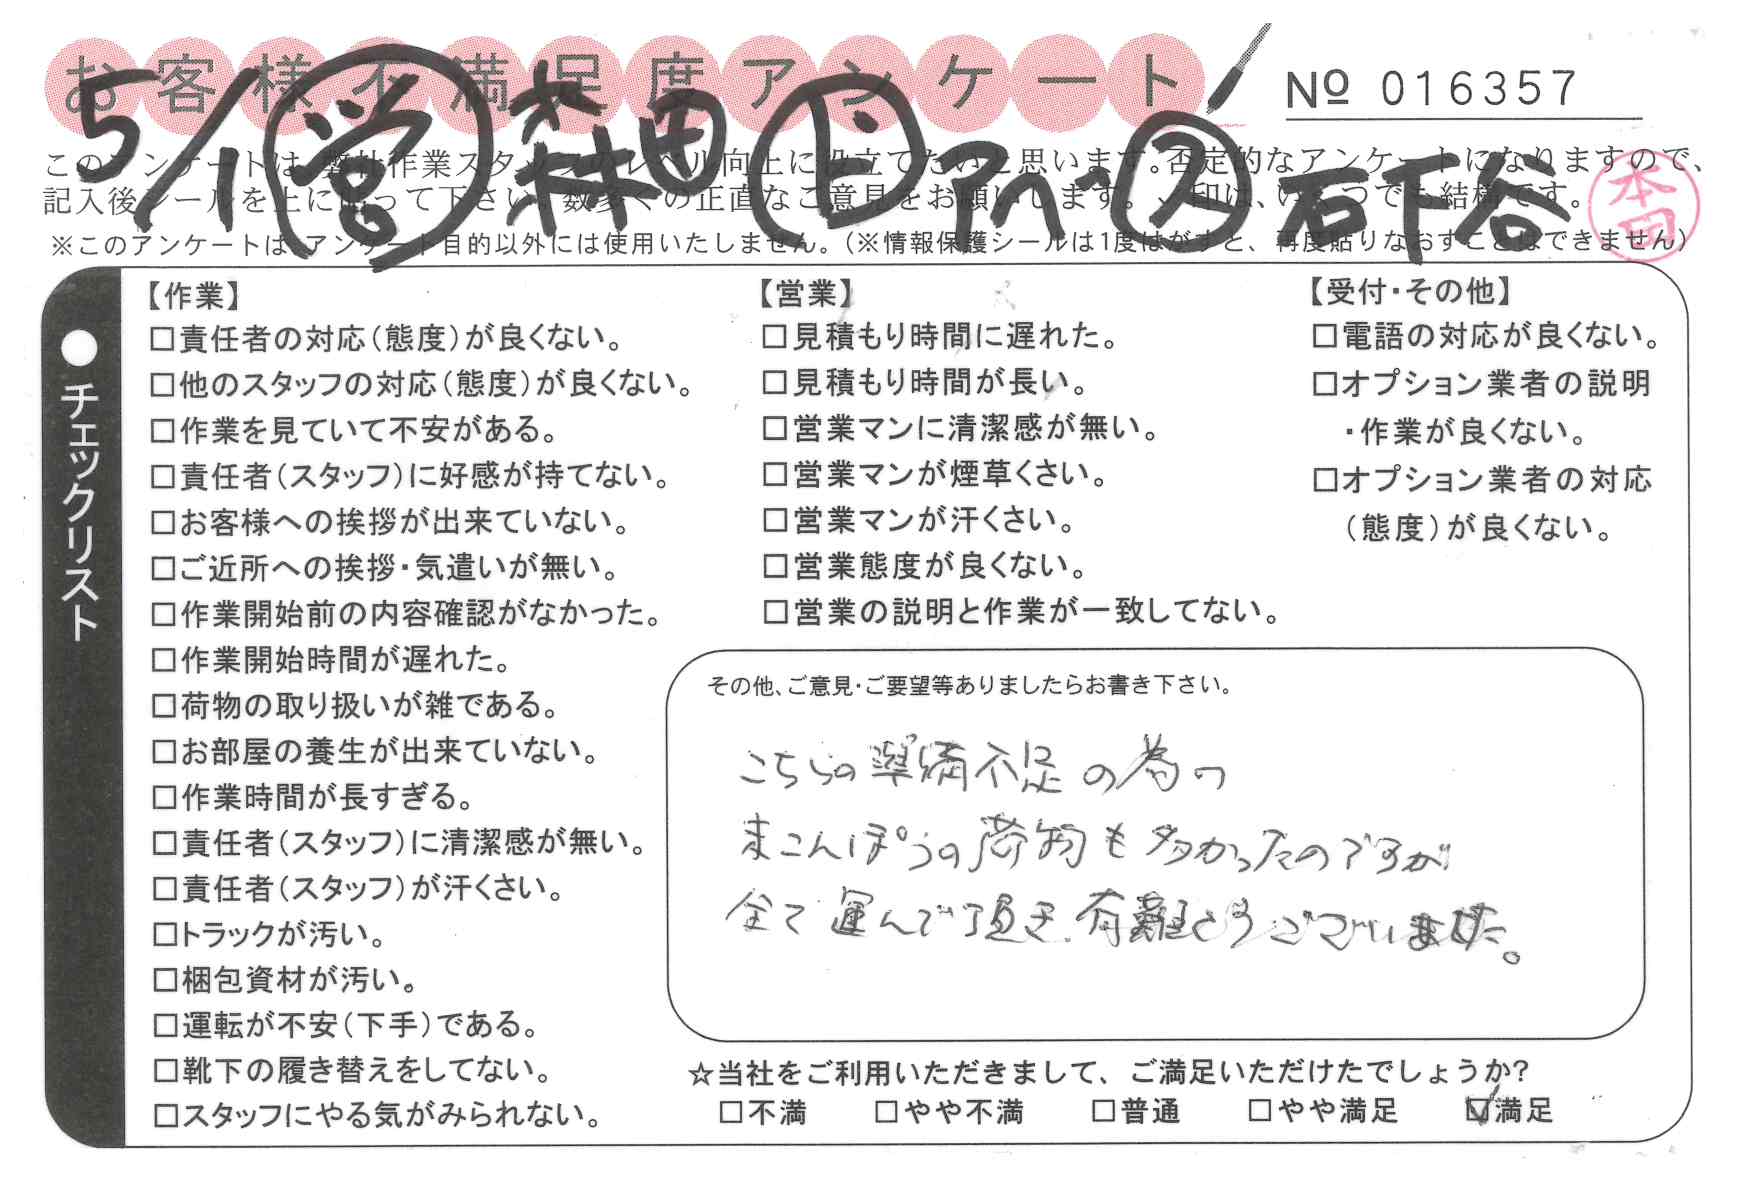 お客様不満足度アンケート
№ 016357
5/1 営 森田 ト アベ ス 石下谷
本田
このアンケートは、弊社作業スタッフのレベル向上に役立てたいと思います。否定的なアンケートになりますので、
記入後シールを上に貼って下さい。数多くの正直なご意見をお願いします。✓印は、いくつでも結構です。
※このアンケートは、アンケート目的以外には使用いたしません。(※情報保護シールは1度はがすと、再度貼りなおすことはできません)
●チェックリスト
【作業】
□責任者の対応(態度)が良くない。
□他のスタッフの対応(態度)が良くない。
□作業を見ていて不安がある。
□責任者(スタッフ)に好感が持てない。
□お客様への挨拶が出来ていない。
□ご近所への挨拶・気遣いが無い。
□作業開始前の内容確認がなかった。
□作業開始時間が遅れた。
□荷物の取り扱いが雑である。
□お部屋の養生が出来ていない。
□作業時間が長すぎる。
□責任者(スタッフ)に清潔感が無い。
□責任者(スタッフ)が汗くさい。
□トラックが汚い。
□梱包資材が汚い。
□運転が不安(下手)である。
□靴下の履き替えをしてない。
□スタッフにやる気がみられない。
【営業】
□見積もり時間に遅れた。
□見積もり時間が長い。
□営業マンに清潔感が無い。
□営業マンが煙草くさい。
□営業マンが汗くさい。
□営業態度が良くない。
□営業の説明と作業が一致してない。
【受付・その他】
□電話の対応が良くない。
□オプション業者の説明
・作業が良くない。
□オプション業者の対応
(態度)が良くない。
その他、ご意見・ご要望等ありましたらお書き下さい。
こちらの準備不足の為の
未こんぽうの荷物も多かったのですが
全て運んで頂き、有難とうございました。
☆当社をご利用いただきまして、ご満足いただけたでしょうか?
□不満 □やや不満 □普通 □やや満足 ☑満足